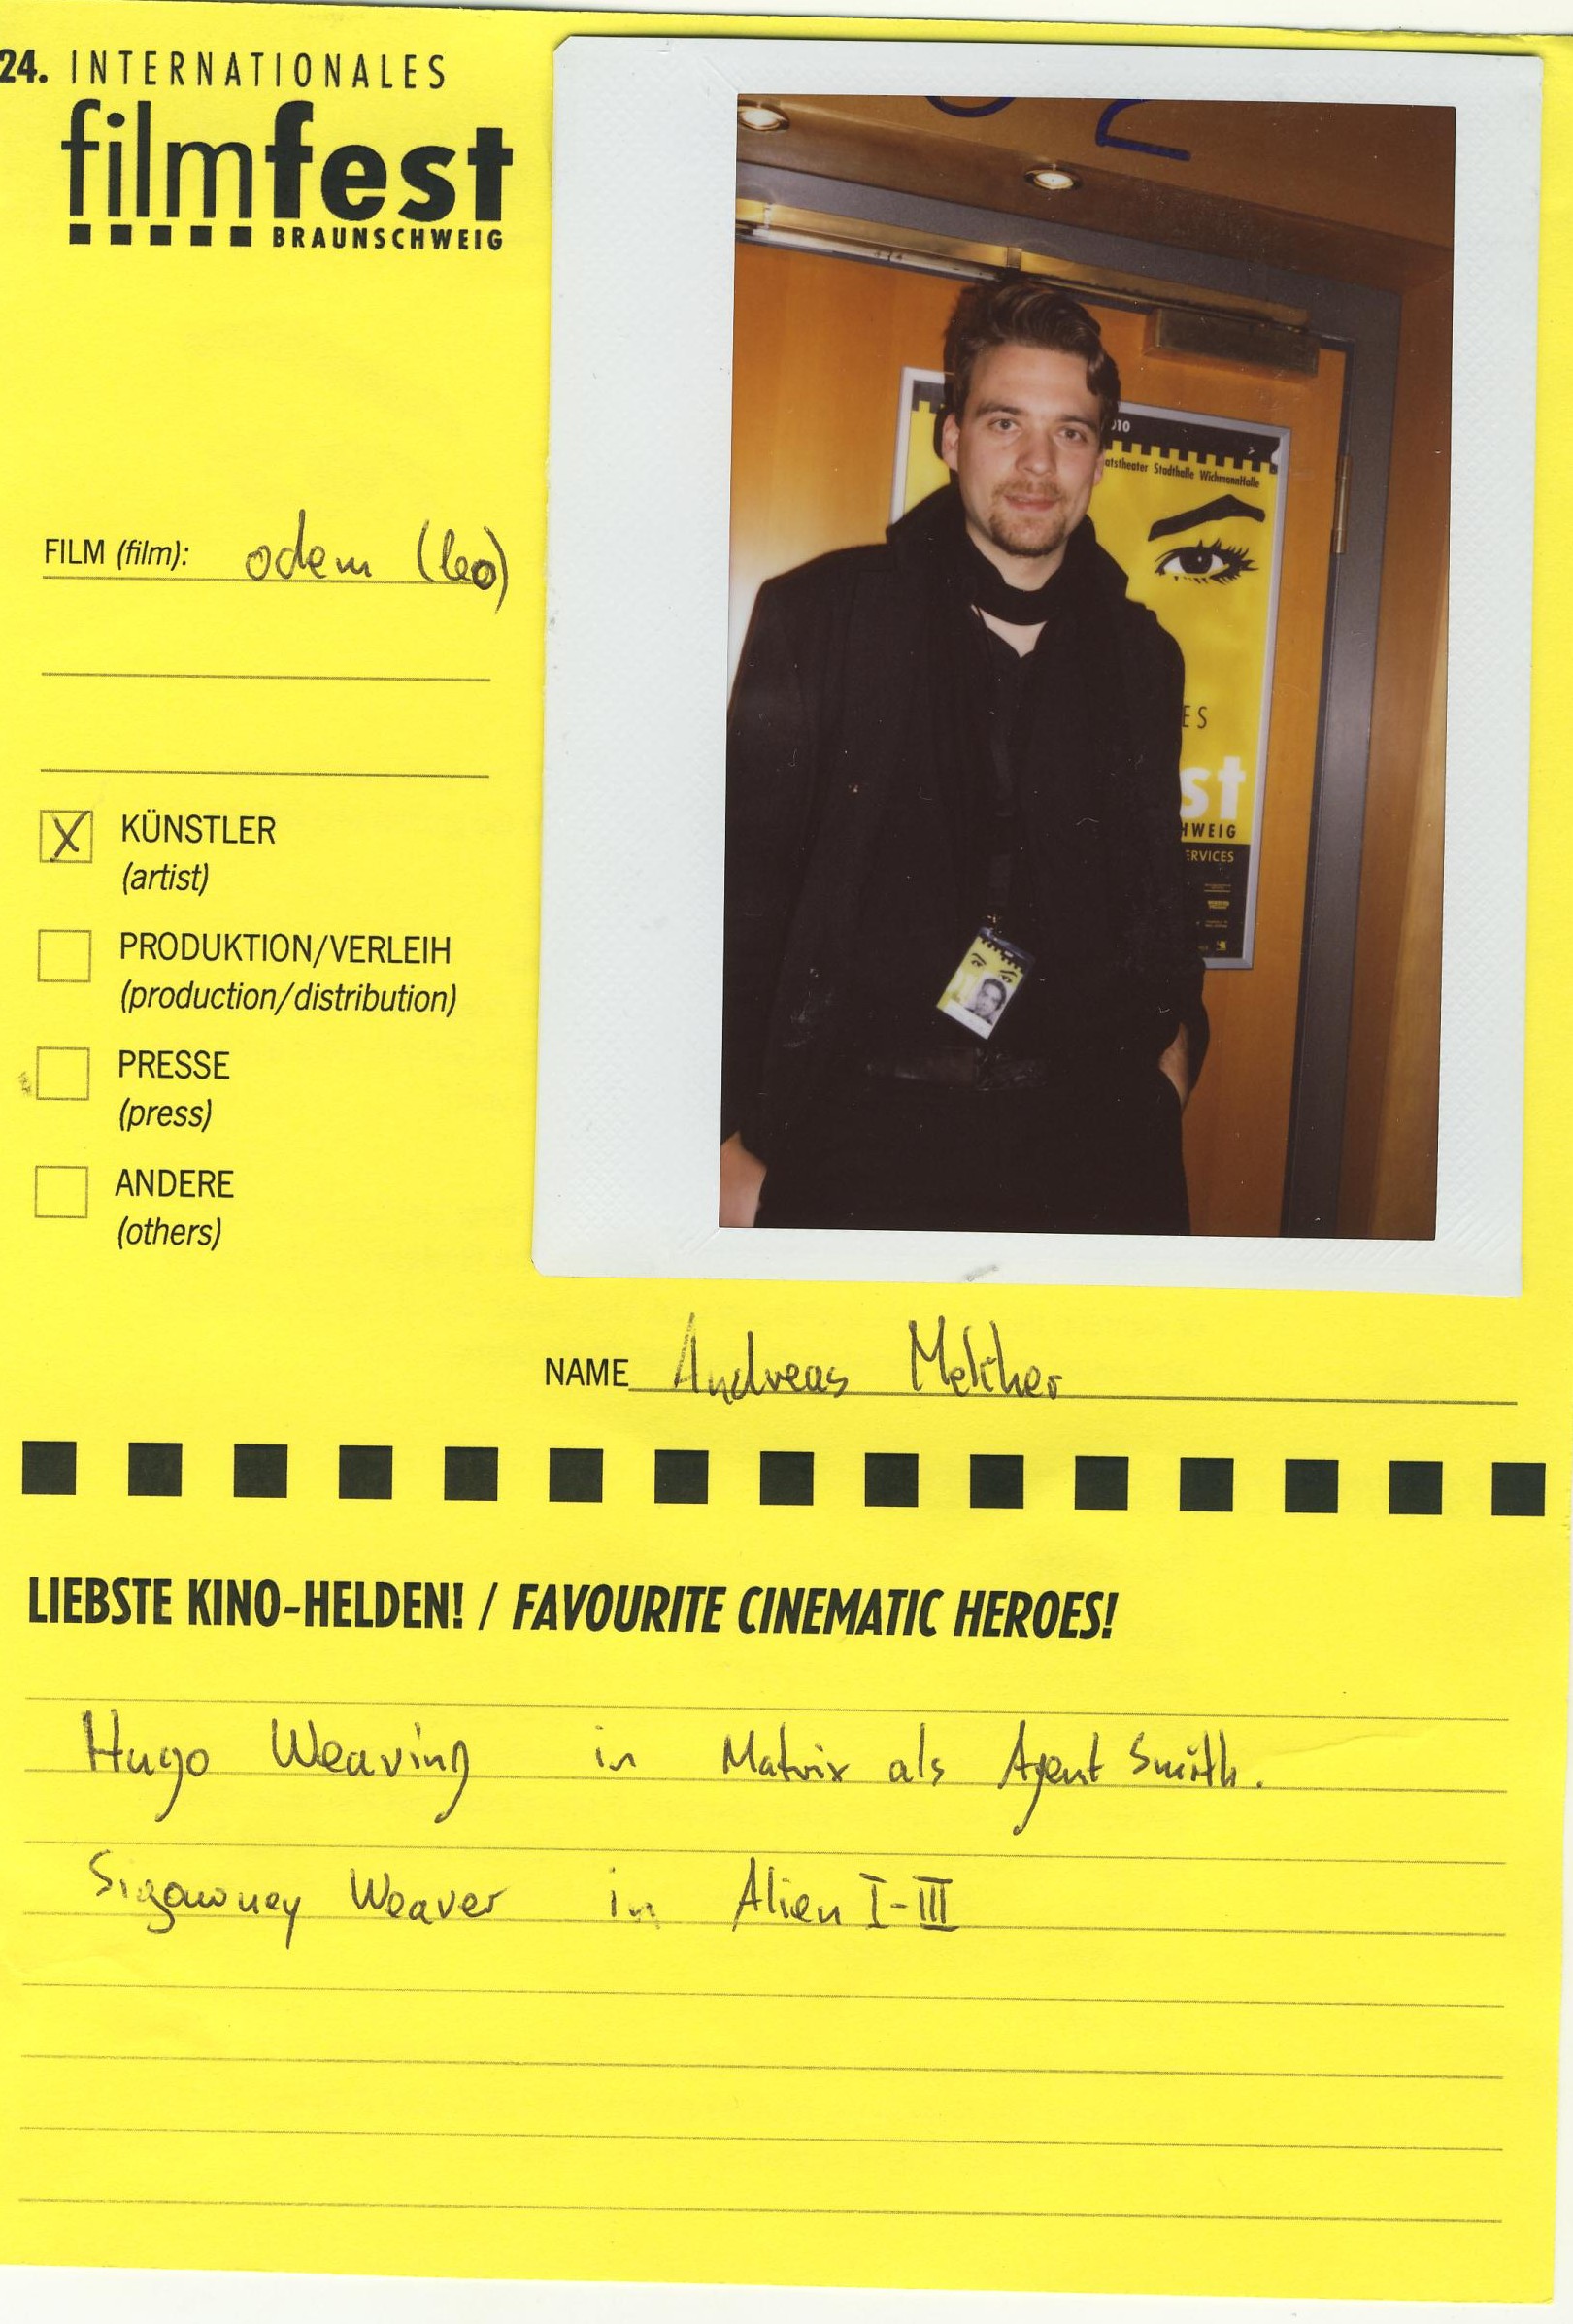 24. INTERNATIONALES
filmfest
BRAUNSCHWEIG
FILM (film): odem (leo)
X KÜNSTLER
(artist)
PRODUKTION/VERLEIH
(production/distribution)
PRESSE
(press)
ANDERE
(others)
atstheater Stadthalle WichmannHalle
ES
st
HWEIG
ERVICES
NAME Andreas Melcher
LIEBSTE KINO-HELDEN! / FAVOURITE CINEMATIC HEROES!
Hugo Weaving in Matrix als Agent Smith.
Sigowney Weaver in Alien I-III